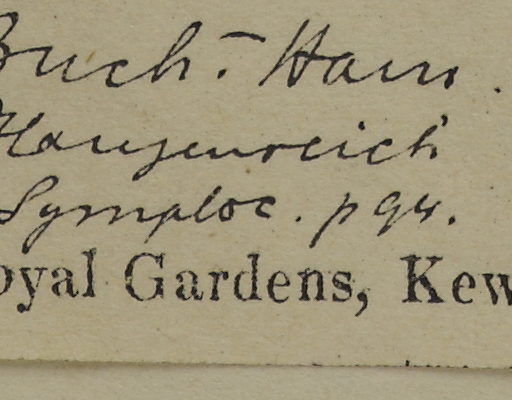 Buch.-Ham.
Pflanzenreich
Symploc. p 94.
oyal Gardens, Kew